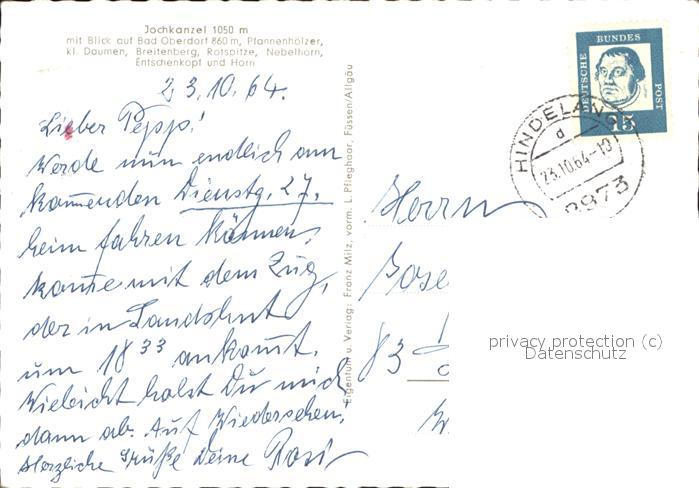 Jochkanzel 1050 m
mit Blick auf Bad Oberdorf 860 m, Pfannenhölzer,
kl. Daumen, Breitenberg, Rotspitze, Nebelhorn,
Entschenkopf und Horn
23.10.64.
Lieber Pepp!
Werde nun endlich am
kommenden Dienstg. 27.
heim fahren können,
komme mit dem Zug,
der in Landshut
um 18 33 ankommt.
Vieleicht holst Du mich
dann ab. Auf Wiedersehen.
Herzliche Grüße Deine Rosi
Eigentum u. Verlag: Franz Milz, vorm. L. Pflieghaar, Füssen/Allgäu
DEUTSCHE BUNDES POST
15
HINDELANG
d
23.10.64-10
8973
Herrn
Jose
83
privacy protection (c)
Datenschutz